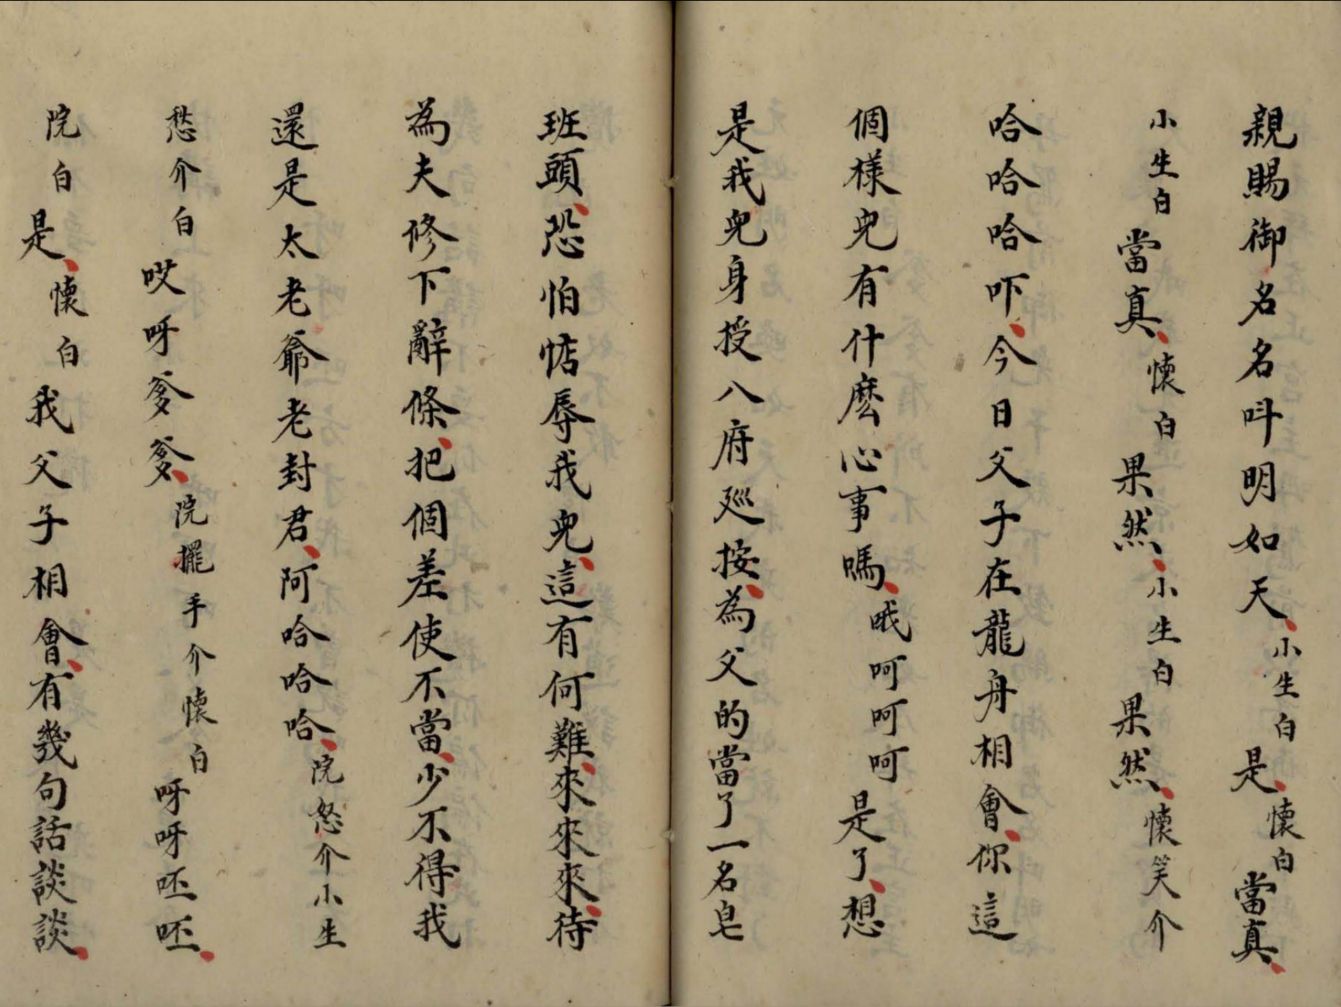 親賜御名名呌明如天、小生白是、懷白當真、
小生白當真、懷白果然、小生白果然、懷笑介
哈哈哈吓、今日父子在龍舟相會、你這
個樣兒有什麽心事嗎、哦呵呵呵是了、想
是我兒身授八府廵按、為父的當了一名皂
班頭、恐怕惦辱我兒、這有何難、來來來、待
為夫修下辭條、把個差使不當、少不得我
還是太老爺老封君、阿哈哈哈、院怒介小生
愁介白哎呀爹爹、院擺手介懷白呀呀呸呸、
院白是、懷白我父子相會、有幾句話談談、